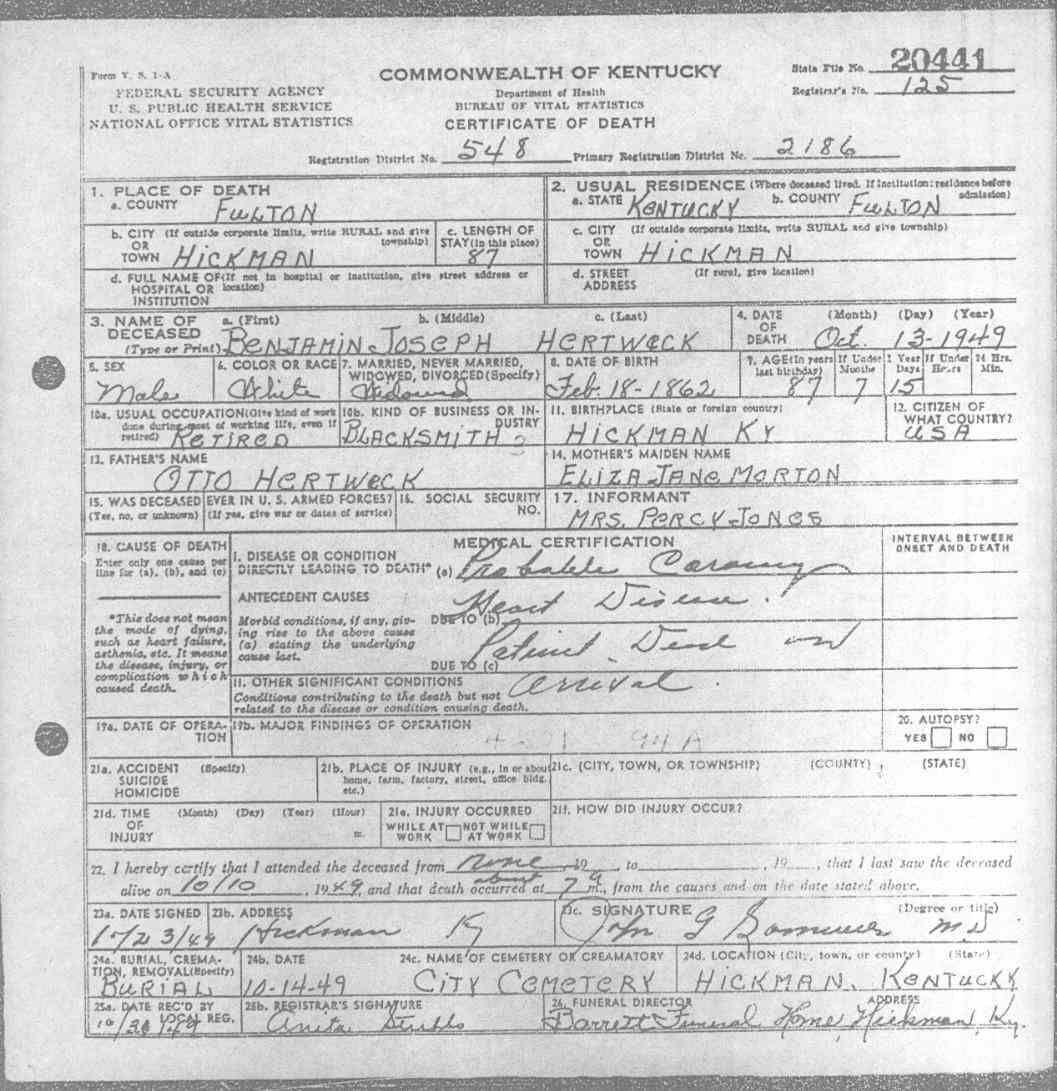 Form V. S. 1-A
FEDERAL SECURITY AGENCY
U. S. PUBLIC HEALTH SERVICE
NATIONAL OFFICE VITAL STATISTICS
COMMONWEALTH OF KENTUCKY
Department of Health
BUREAU OF VITAL STATISTICS
CERTIFICATE OF DEATH
State File No. 20441
Registrar's No. 125
Registration District No. 548 Primary Registration District No. 2186
1. PLACE OF DEATH
a. COUNTY FULTON
2. USUAL RESIDENCE (Where deceased lived. If institution: residence before admission)
a. STATE KENTUCKY b. COUNTY FULTON
b. CITY (If outside corporate limits, write RURAL and give township)
OR
TOWN HICKMAN
c. LENGTH OF STAY (in this place)
87
c. CITY (If outside corporate limits, write RURAL and give township)
OR
TOWN HICKMAN
d. FULL NAME OF (If not in hospital or institution, give street address or location)
HOSPITAL OR
INSTITUTION
d. STREET ADDRESS (If rural, give location)
3. NAME OF DECEASED (Type or Print)
a. (First) b. (Middle) c. (Last)
BENJAMIN JOSEPH HERTWECK
4. DATE OF DEATH (Month) (Day) (Year)
Oct. 13-1949
5. SEX
Male
6. COLOR OR RACE
White
7. MARRIED, NEVER MARRIED, WIDOWED, DIVORCED (Specify)
Widowed
8. DATE OF BIRTH
Feb. 18-1862
9. AGE (In years last birthday) If Under 1 Year Months Days If Under 24 Hrs. Hours Min.
87 7 15
10a. USUAL OCCUPATION (Give kind of work done during most of working life, even if retired)
RETIRED
10b. KIND OF BUSINESS OR INDUSTRY
BLACKSMITH
11. BIRTHPLACE (State or foreign country)
HICKMAN KY
12. CITIZEN OF WHAT COUNTRY?
USA
13. FATHER'S NAME
OTTO HERTWECK
14. MOTHER'S MAIDEN NAME
ELIZA JANE MORTON
15. WAS DECEASED EVER IN U. S. ARMED FORCES?
(Yes, no, or unknown) (If yes, give war or dates of service)
16. SOCIAL SECURITY NO.
17. INFORMANT
MRS. PERCY JONES
18. CAUSE OF DEATH
Enter only one cause per line for (a), (b), and (c)
*This does not mean the mode of dying, such as heart failure, asthenia, etc. It means the disease, injury, or complication which caused death.
MEDICAL CERTIFICATION
INTERVAL BETWEEN ONSET AND DEATH
I. DISEASE OR CONDITION
DIRECTLY LEADING TO DEATH* (a) Probable
ANTECEDENT CAUSES
Morbid conditions, if any, giving rise to the above cause (a) stating the underlying cause last.
DUE TO (b) Heart Disease.
Patient Dead on
DUE TO (c)
arrival.
II. OTHER SIGNIFICANT CONDITIONS
Conditions contributing to the death but not related to the disease or condition causing death.
19a. DATE OF OPERATION
19b. MAJOR FINDINGS OF OPERATION
94A
20. AUTOPSY?
YES NO
21a. ACCIDENT (Specify)
SUICIDE
HOMICIDE
21b. PLACE OF INJURY (e.g., in or about home, farm, factory, street, office bldg. etc.)
21c. (CITY, TOWN, OR TOWNSHIP) (COUNTY) (STATE)
21d. TIME OF INJURY (Month) (Day) (Year) (Hour) m.
21e. INJURY OCCURRED
WHILE AT WORK NOT WHILE AT WORK
21f. HOW DID INJURY OCCUR?
22. I hereby certify that I attended the deceased from none 19 , to , 19 , that I last saw the deceased
alive on 10/10, 1949, and that death occurred at about 7 a m., from the causes and on the date stated above.
23a. DATE SIGNED
23b. ADDRESS
Hickman Ky
23c. SIGNATURE (Degree or title)
John G M.D
24a. BURIAL, CREMATION, REMOVAL (Specify)
BURIAL
24b. DATE
10-14-49
24c. NAME OF CEMETERY OR CREAMATORY
CITY CEMETERY
24d. LOCATION (City, town, or county) (State)
HICKMAN, KENTUCKY
25a. DATE REC'D BY LOCAL REG.
25b. REGISTRAR'S SIGNATURE
Anita
26. FUNERAL DIRECTOR ADDRESS
Barrett Funeral Home, Hickman, Ky.